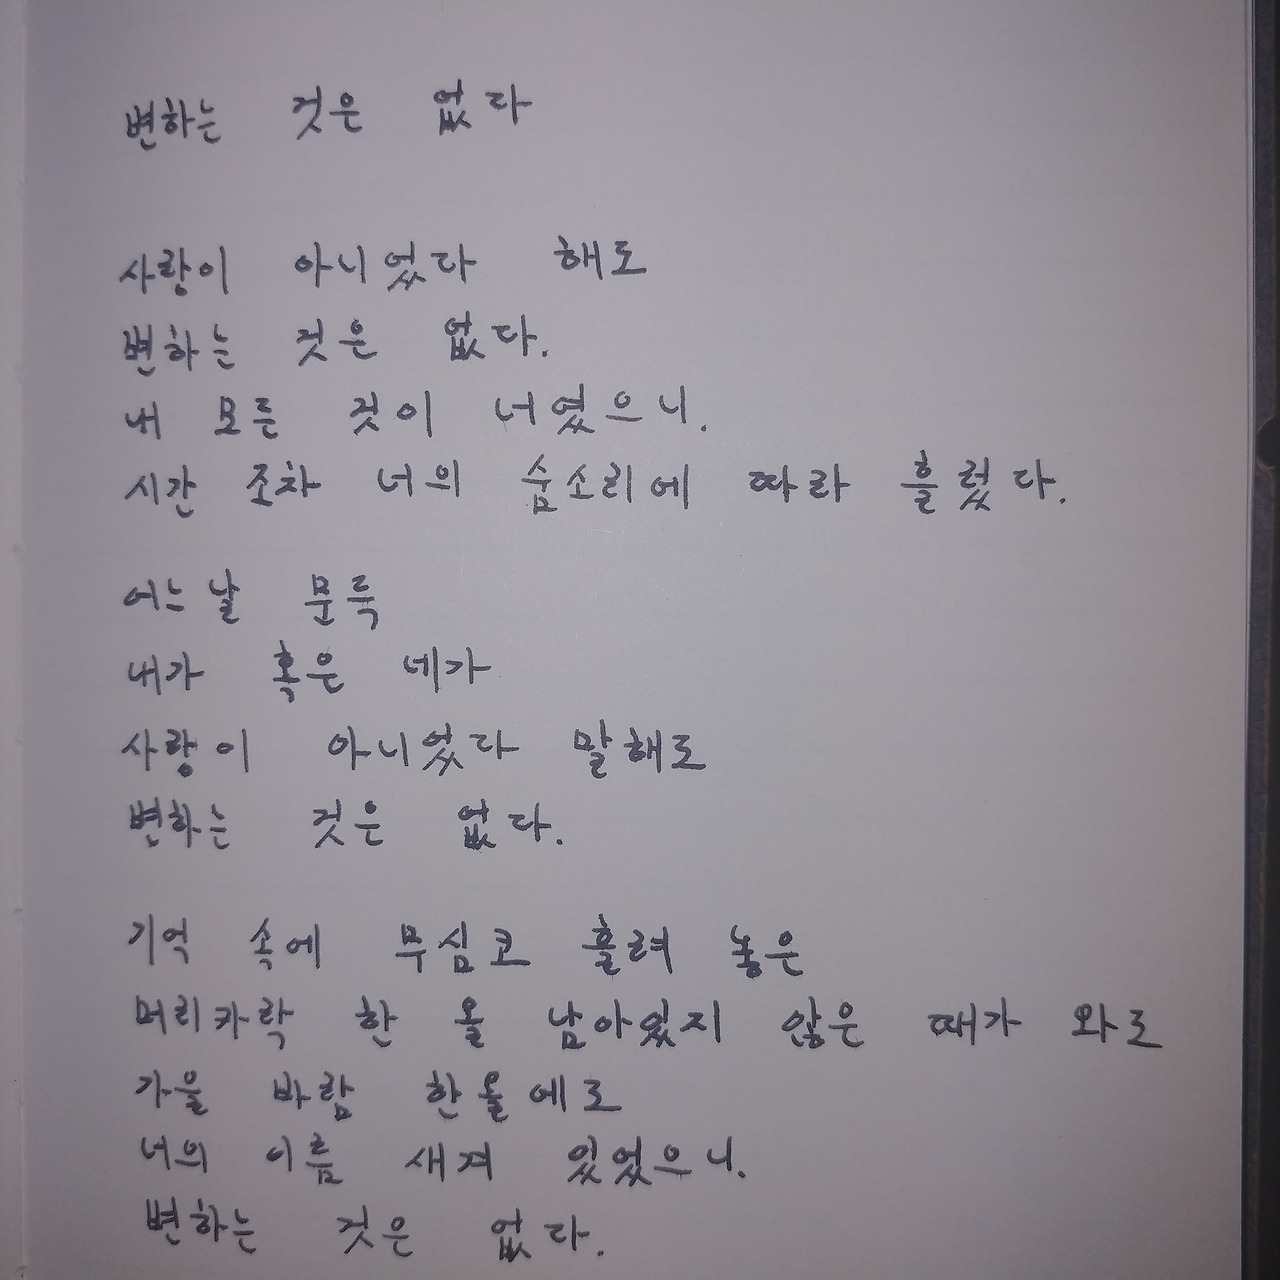 변하는 것은 없다
사랑이 아니었다 해도
변하는 것은 없다.
내 모든 것이 너였으니.
시간 조차 너의 숨소리에 따라 흘렀다.
어느날 문득
내가 혹은 네가
사랑이 아니었다 말해도
변하는 것은 없다.
기억 속에 무심코 흘려 놓은
머리카락 한 올 남아있지 않은 때가 와도
가을 바람 한올에도
너의 이름 새겨 있었으니.
변하는 것은 없다.